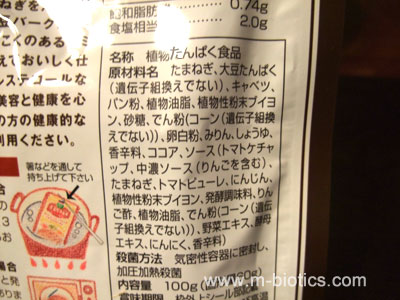 飽和脂肪 0.74g
食塩相当 2.0g
名称 植物たんぱく食品
原材料名 たまねぎ、大豆たんぱく
(遺伝子組換えでない)、キャベツ、
パン粉、植物油脂、植物性粉末ブイヨ
ン、砂糖、でん粉(コーン(遺伝子組換
えでない))、卵白粉、みりん、しょうゆ、
香辛料、ココア、ソース(トマトケチャ
ップ、中濃ソース(りんごを含む)、
たまねぎ、トマトピューレ、にんじん、
植物性粉末ブイヨン、発酵調味料、りん
ご酢、植物油脂、でん粉(コーン(遺伝
子組換えでない))、野菜エキス、酵母
エキス、にんにく、香辛料)
殺菌方法 気密性容器に密封し、
加圧加熱殺菌
内容量 100g
賞味期限 枠外上シール部
ねぎを
バーク
こくのある
えておいしく仕
レステロールな
美容と健康を心
の方の健康的な
利用ください。
箸などを通して
持ち上げて下さい
www.m-biotics.com